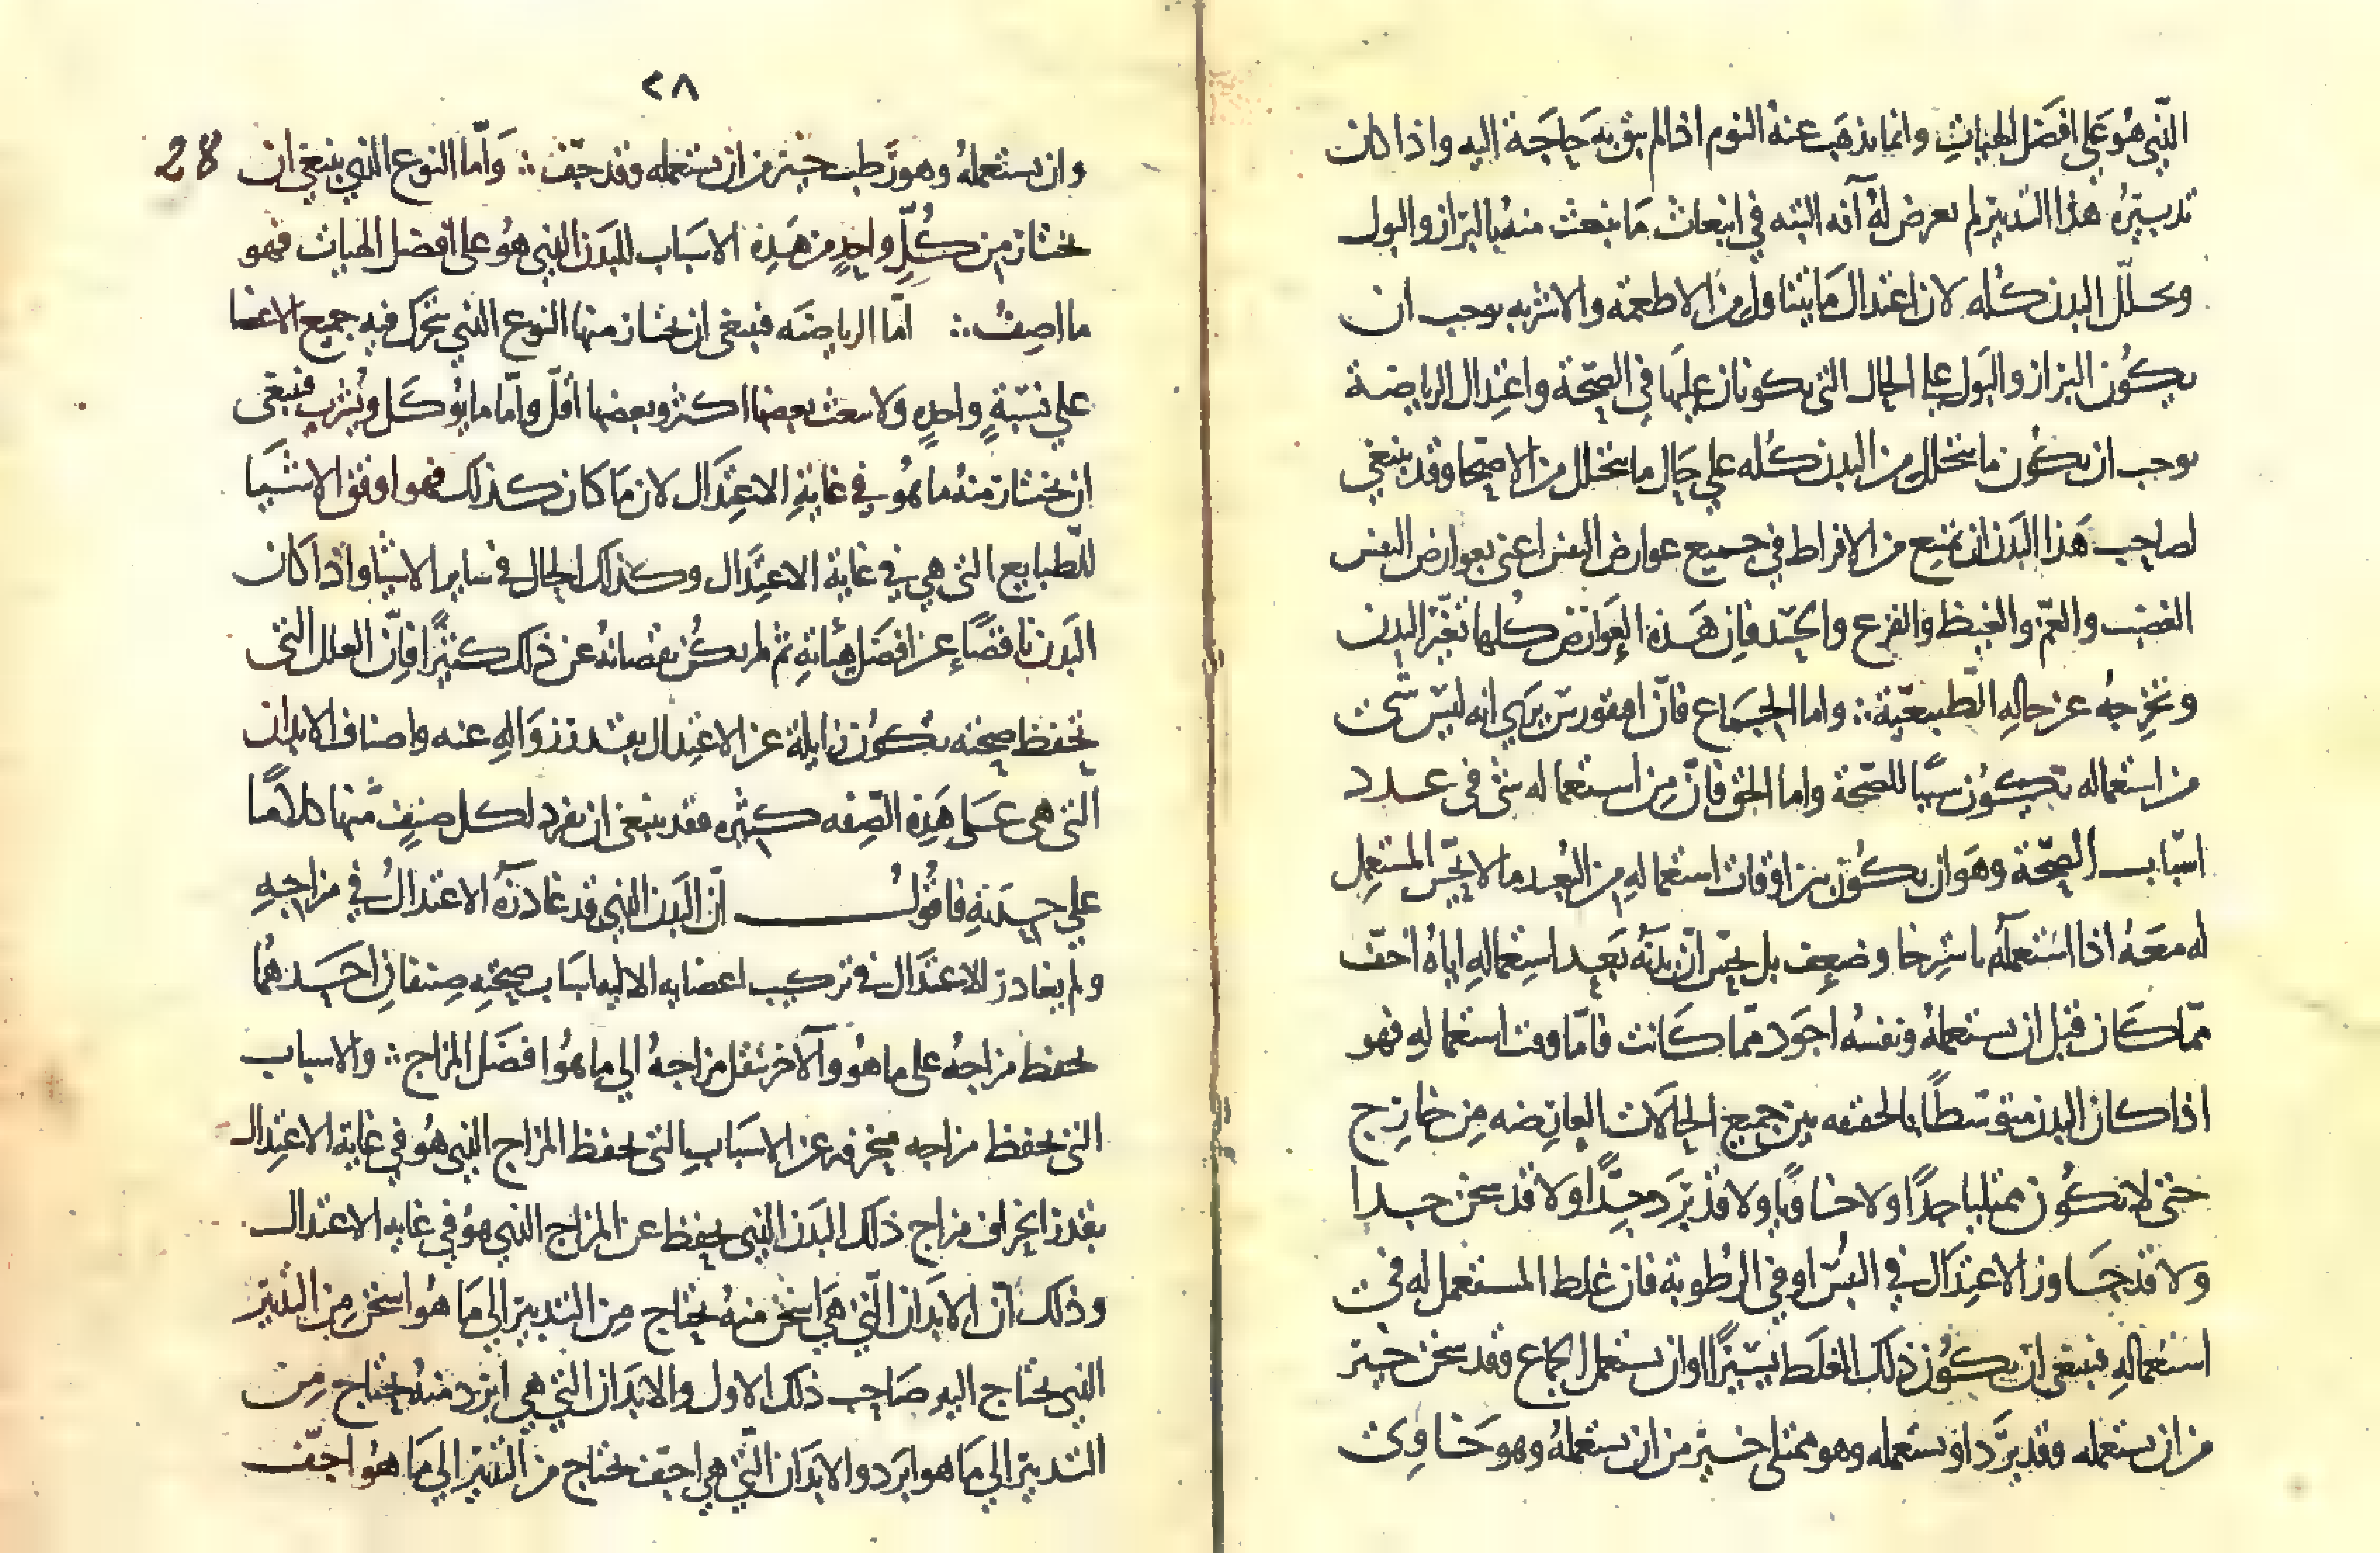 الذي هُو عَلي افضَل الهيات وانما يذهَب عنهُ النوم اذا لم يبق به حاجَة اليه واذا كان
تدبيرُه هذا التدبير لم يعرض لهُ آفه البته في انبعاث مَا ينبعث منهُ بالبراز والبول
وتحلّل البدن كُله لان اعتدال مَا يتناول من الاطعمة والاشربه يوجب ان
يكُون البراز والبَول علي الحال التي يكونان عليها في الصّحة واعتِدال الرياضة
يوجب ان يكُون ما يتحلل من البدن كُله علي حَال ما يتحلل من الاصحا وقد ينبغي
لصاحِب هَذا البَدن ان يمتنِع من الافراط في جميع عوارض النفس اعني بعوارض النفس
الغضَب والغمّ والغيظ والفزع والحسَد فان هَذه العَوارض كلها تغيّر البدن
وتخرِجهُ عن حالهِ الطّبيعيّة ∴ واما الجماع فانّ افيقورس يَري انه ليسَ شي
من استعماله يكُون سبَبًا للصّحة واما الحق فانّ مِن استعماله شي في عدد
اسبَاب الصّحة وهَو ان يكُون بين اوقات استعمالهِ من البُعد ما لا يحسّ المستعمِل
له معَهُ اذا استعملَه باسترخا وضعف بل يحسّ انّ بدَنهُ بَعد استِعمالهِ اياهُ اخفّ
ممّا كَان قبل ان يستعملهُ ونفسهُ اجوَد ممّا كانت فامّا وقت استعمالهِ فهو
اذا كان البدن متوَسّطًا بالحقيقه بين جميع الحَالات العارضه مِن خارِج
حتى لا يكُون ممتليا جدًا ولا خاويًا ولا قد بَرد جِدًّا ولا قد سخن جدا
ولا قد جَاوز الاعتِدَال في اليُبس او في الرُطوبة فان غلط المستعمل له في
استعمالهِ فينبغي ان يكُون ذلك الغلَط يسيرًا وان يستعمل الجماع وقد سخن خير
من ان يستعمله وقد برَد او يستعمله وهو ممتلي خير من ان يستعملهُ وهو خَاوي
٢٨
28
وان يستعملهُ وهو رَطب خير من ان يستعمله وقد جفّ ∴ وَامّا النوع الذي ينبغي ان
يختار مِن كُلّ واحدٍ من هَذِه الاسبَاب للبَدن الذي هُو علي افضل الهيات فهو
ما اصِفُ ∴ امّا الرياضَه فينبغي ان يختار منها النوع الذي يتحرك فيه جميع الاعضا
علي نسبَةٍ واحدةٍ ولا يتعب بعضها اكثر وبعضها اقلّ وامّا ما يُوكَل ويُشرب فينبغي
ان يختار منهُ ما هُو في غايَةِ الاعتِدَال لان مَا كان كذلك فهو اوفق الاشيَا
للطبايع التي هي في غاية الاعتِدَال وكذلك الحال في ساير الاشيا واذا كان
البَدن ناقصًا عن افضَل هيأتِه ثم لم يكُن نقصانهُ عن ذلك كثيرًا فانّ العِلل التي
تحفظ صحته تكُون زايلة عن الاعتِدال بقدر زوَالهِ عنه واصناف الابدان
التي هي عَلى هَذِه الصّفه كثيره فقد ينبغي ان نفرد لكل صِنفٍ منها كلامًا
علي حِدتهِ فاقُولُ انّ البَدن الذي قد غادرَهُ الاعتدالُ في مزاجِهِ
ولم يغادر الاعتدَال في تركيب اعضايه الاليه اسبَاب صحّتِه صِنفانِ احدهُما
يحفظ مزاجهُ علي ما هُو والآخر ينقل مزاجهُ الي ما هُو افضَل المزاج ∴ والاسباب
التي تحفظ مزاجه منحرفه عن الاسبَاب التي تحفظ المزاج الذي هُو في غاية الاعتِدال
بقدر انحراف مزاج ذلك البَدن الذي يحفظ عن المزاج الذي هُو في غايه الاعتدال
وذلك انّ الابدَان الّتي هيَ اسخَن منهُ تحتاج مِن التدبير الي مَا هُو اسخن مِن التدبير
الذي يحتاج اليهِ صَاحِب ذلك الاول والابدَان التي هي ابرَد منهُ تحتاج مِن
التدبير الي مَا هو ابرَد والابدَان الّتي هي اجفّ تحتاج من التدبير الي مَا هُو اجفّ